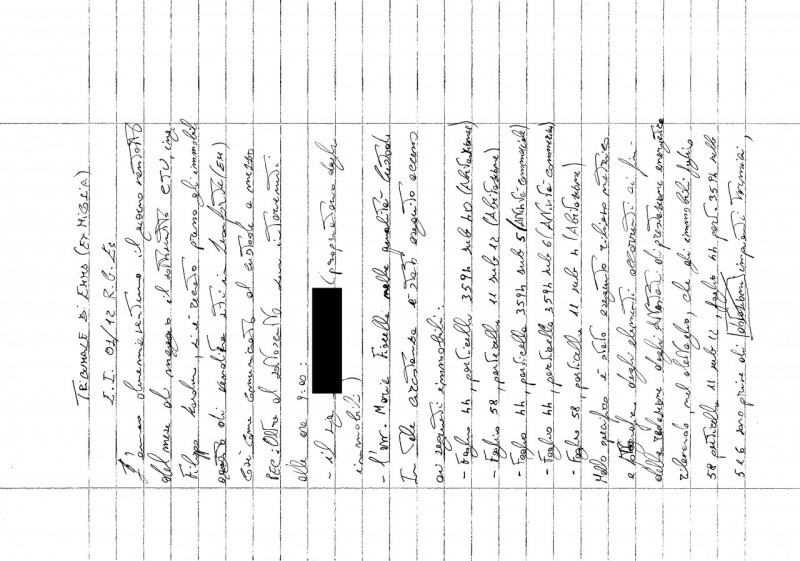 TRIBUNALE DI ENNA (EX NICOSIA)
E.I. 01/12 R.G.Es
L'anno duemilaventuno il giorno ventotto
del mese di maggio il sottoscritto CTU, ing.
Filippo, si è recato presso gli immobili
oggetto di vendita siti in Leonforte (EN)
Così come comunicato al custode a mezzo
PEC, oltre al sottoscritto sono intervenuti
alle ore 9:00:
- il sig. (proprietario degli
immobili)
- l'Avv. Maria Fiscella nella qualità di custode
In tale circostanza è stato eseguito accesso
ai seguenti immobili:
- Foglio 44, particella 3594 sub 40 (Abitazione)
- Foglio 58, particella 11 sub 12 (Abitazione)
- Foglio 44, particella 3594 sub 5 (Attività commerciale)
- Foglio 44, particella 3594 sub 6 (Attività commerciale)
- Foglio 58, particella 11 sub 4 (Abitazione)
Nello specifico è stato eseguito rilievo metrico
e degli elementi occorrenti ai fini
della redazione degli Attestati di prestazione energetica
rilevando, nel dettaglio, che gli immobili foglio
58 particella 11 sub 12, foglio 44 part. 3594 sub
5 e 6 sono prive di impianti termici,